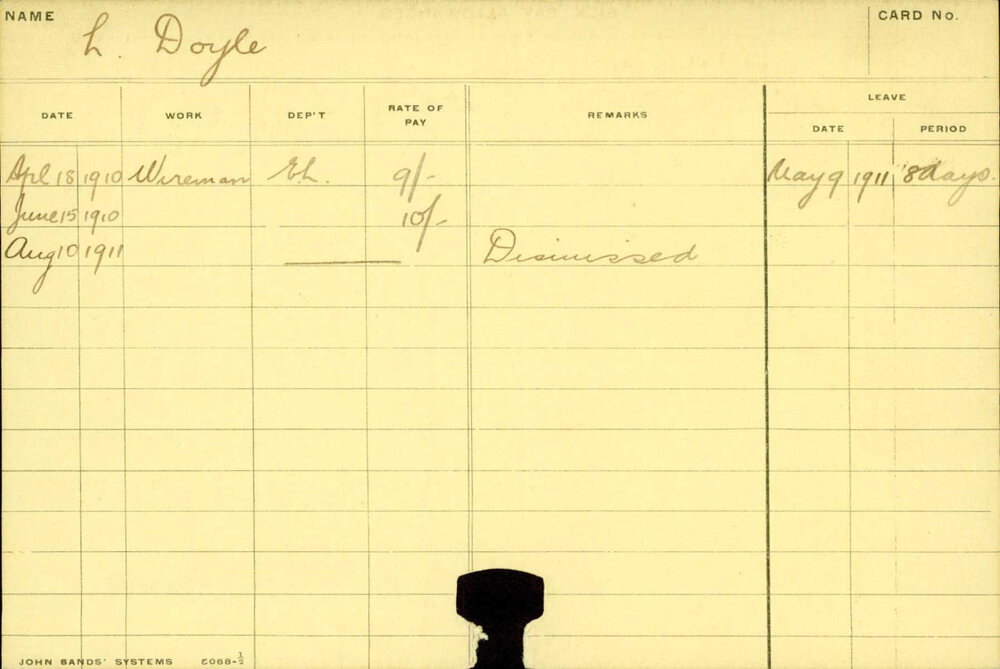 NAME L. Doyle CARD No.
DATE WORK DEP'T RATE OF PAY REMARKS LEAVE
DATE PERIOD
Apl 18 1910 Wireman E.L. 9/- May 9 1911 8 days.
June 15 1910 10/-
Aug 10 1911 Dismissed
JOHN SANDS' SYSTEMS